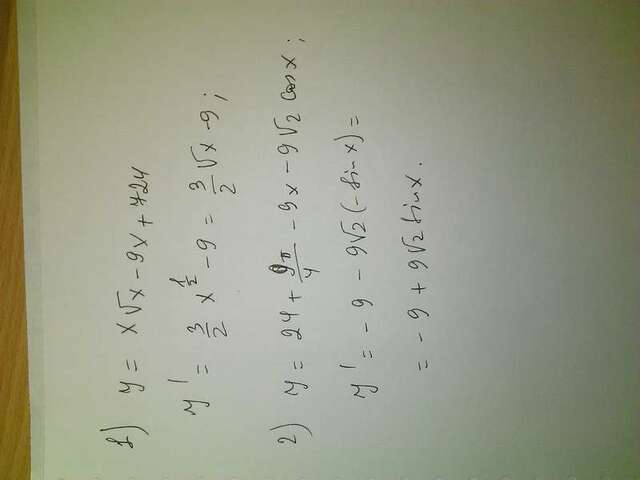 1) y = x√x - 9x + 424
y' = 3/2 x^1/2 - 9 = 3/2 √x - 9;
2) y = 24 + 9π/4 - 9x - 9√2 cos x;
y' = -9 - 9√2 (-sin x) =
= -9 + 9√2 sin x.